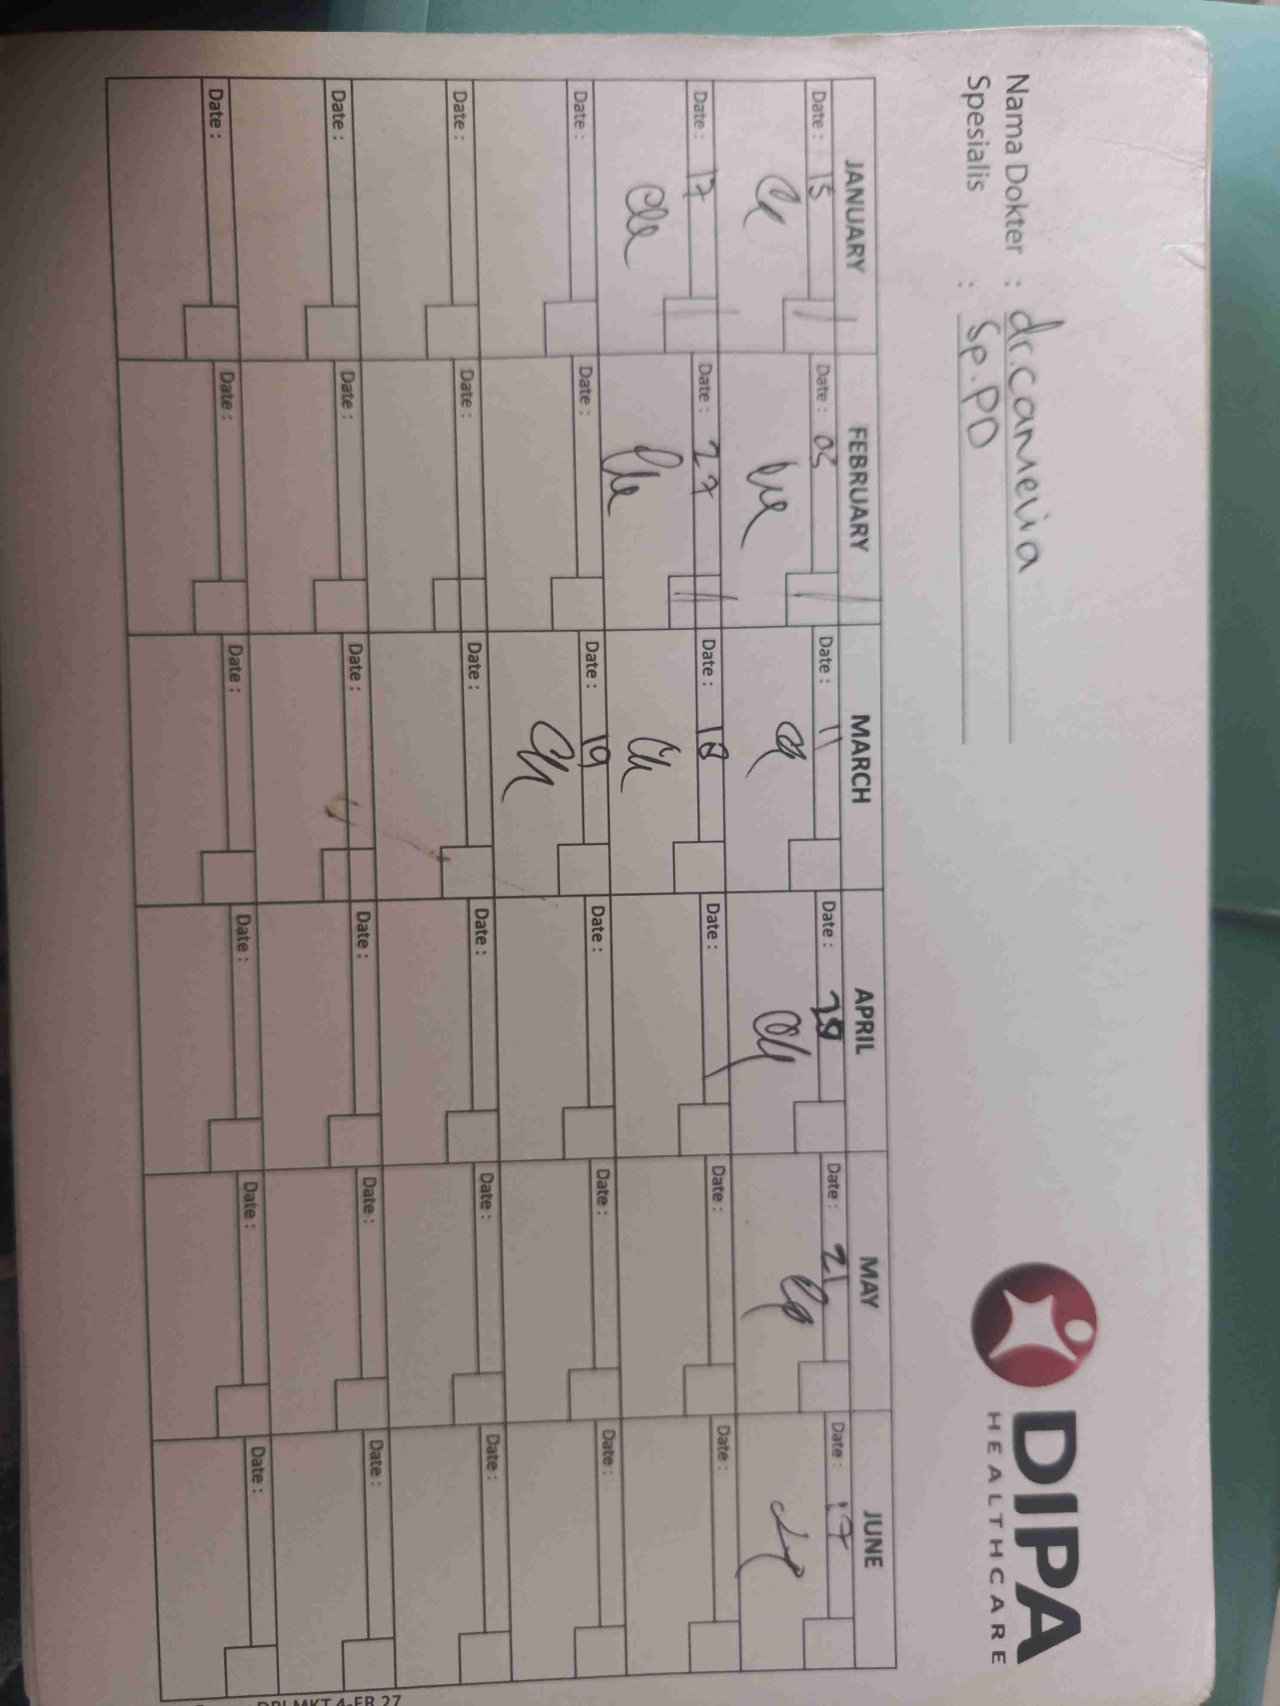 Nama Dokter : dr.camelia
Spesialis : Sp.PD
DIPA
HEALTHCARE
JANUARY FEBRUARY MARCH APRIL MAY JUNE
Date : 15 Date : 05 Date : 11 Date : Date : 21 Date : 17
Date : 17 Date : 27 Date : 18 Date : Date : Date :
Date : Date : Date : 19 Date : Date : Date :
Date : Date : Date : Date : Date : Date :
Date : Date : Date : Date : Date : Date :
Date : Date : Date : Date : Date : Date :